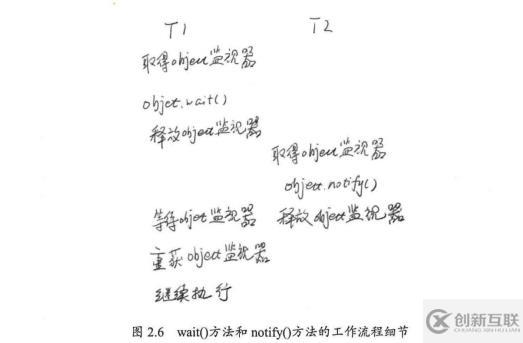 T1
T2
取得object监视器
objet.wait()
释放object监视器
取得object监视器
object.notify()
等待objet监视器
释放object监视器
重获object监视器
继续执行
图 2.6 wait()方法和notify()方法的工作流程细节
创新互联